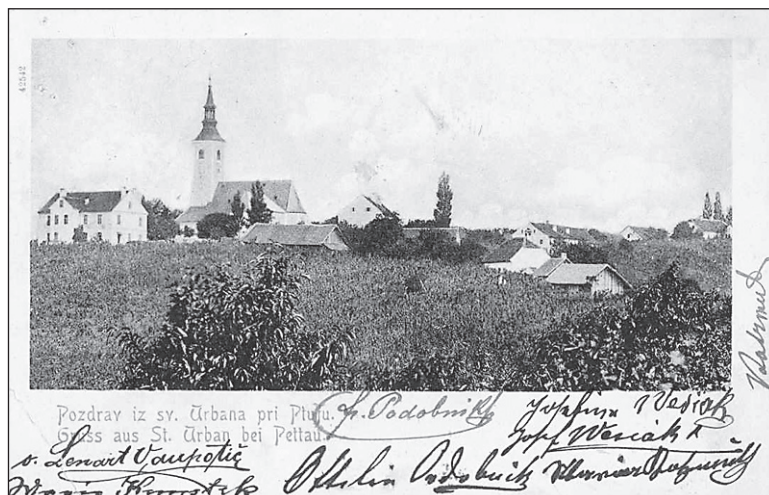 42542
Pozdrav iz sv. Urbana pri Ptuju.
Gruss aus St. Urban bei Pettau.
Fr. Podobnik
Josefina Vesiak
Josef Wesiak
v. Lenart Vaupotič
Ottilia
Maria